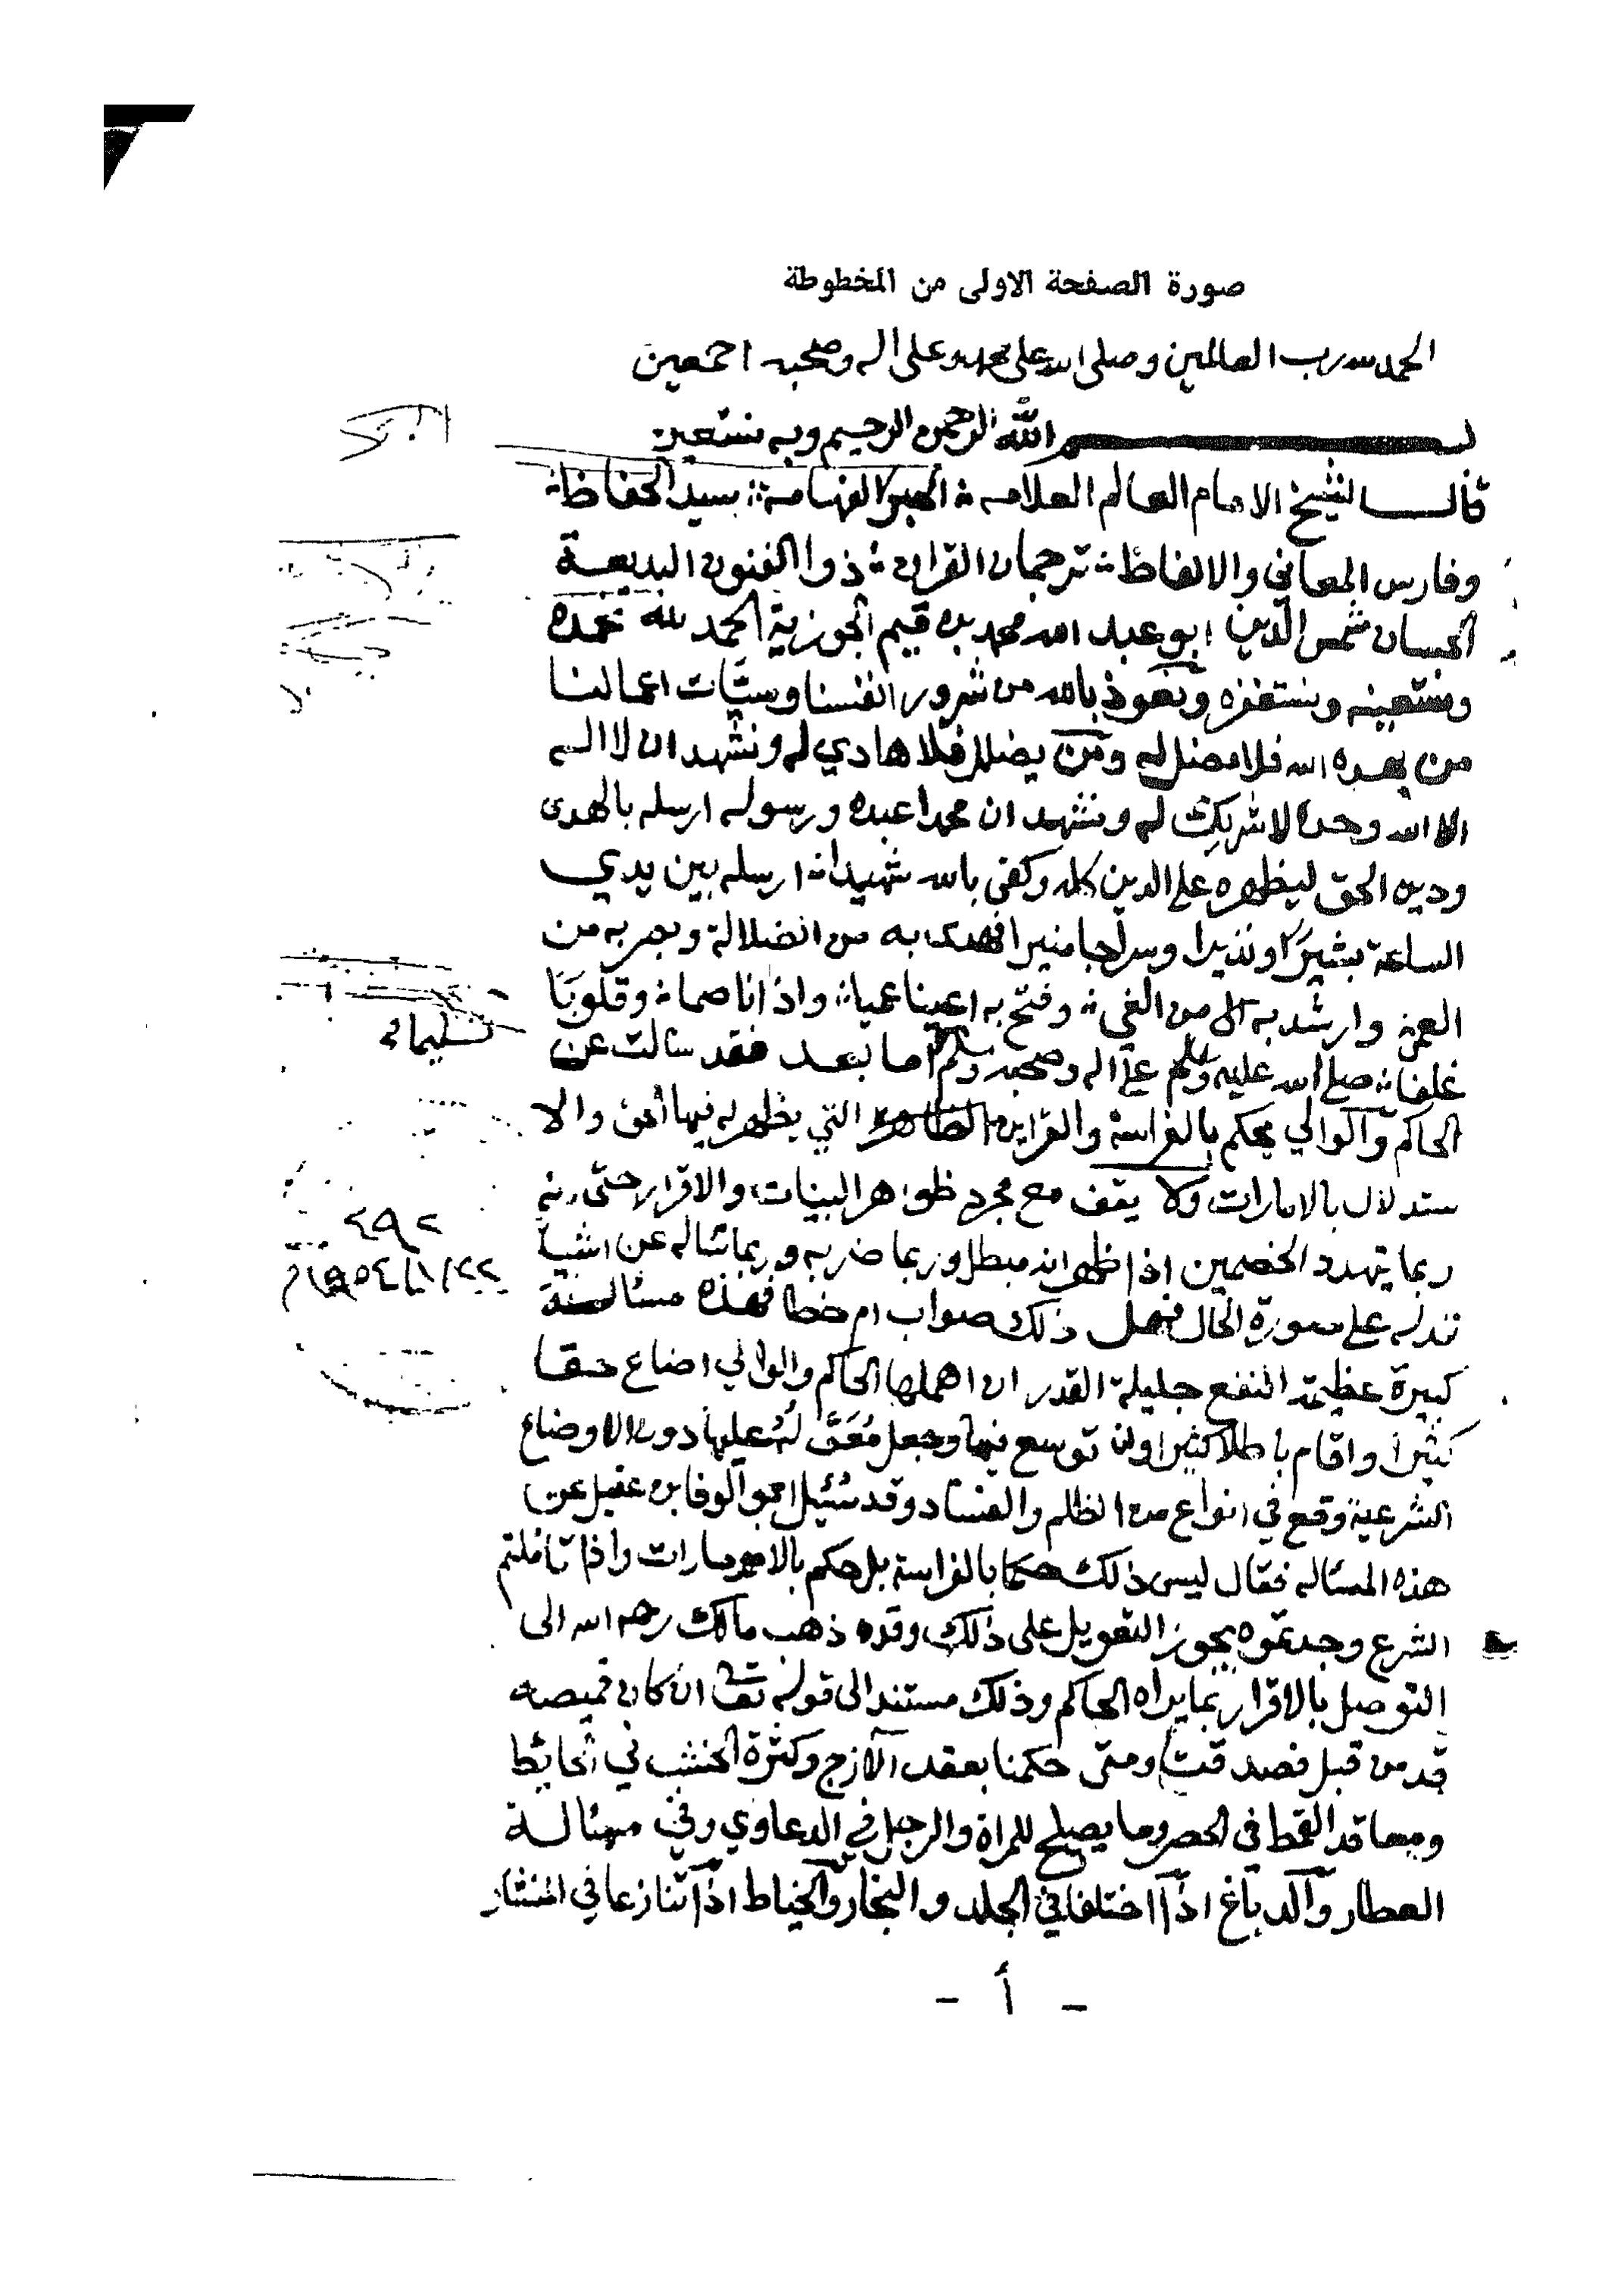 صورة الصفحة الاولى من المخطوطة
الحمد لله رب العالمين وصلى الله على محمد وعلى اله وصحبه اجمعين
بسم الله الرحمن الرحيم وبه نستعين
قال الشيخ الامام العالم العلامة الحبر الفهامة سيد الحفاظ
وفارس المعاني والالفاظ ترجمان القران ذو الفنون البديعة
الحسان شمس الدين ابو عبد الله محمد بن قيم الجوزية الحمد لله نحمده
ونستعينه ونستغفره ونعوذ بالله من شرور انفسنا وسيّات اعمالنا
من يهده الله فلا مضل له ومن يضلل فلا هادي له ونشهد ان لا اله
الا الله وحده لا شريك له ونشهد ان محمدا عبده ورسوله ارسله بالهدى
ودين الحق ليظهره على الدين كله وكفى بالله شهيدا ارسله بين يدي
الساعة بشيرًا ونذيرا وسراجا منيرا فهدى به من الضلالة وبصر به من
العمى وارشد به من الغي وفتح به اعينا عميا واذانا صما وقلوبًا
غلفا صلى الله عليه وسلم على اله وصحبه وسلم اما بعد فقد سالت عن
تسليما
الحاكم والوالي يحكم بالفراسة والقراين التي يظهر له فيها الحق والا
ستدلال بالامارات ولا يقف مع مجرد ظواهر البينات والاقرار حتى انه
ربما يتهدد الخصمين اذا ظهر انه مبطل وربما ضربه وربما سَاله عن اشيا
تدله على صورة الحال فهل ذلك صواب ام خطا فهذه مسئالة
كبيرة عظيمة النفع جليلة القدر ان اهملها الحاكم والوالي اضاع حقا
كثيرًا واقام باطلا كثيرا وان توسع فيها وجعل مُعَوَّلَهُ عليها دون الاوضاع
الشرعية وقع في انواع من الظلم والفساد وقد سُئل ابو الوفا بن عقيل عن
هذه المسئاله فقال ليس ذلك حكما بالفراسة بل حكم بالامارات واذا تاملتم
الشرع وجدتموه يجوز التعويل على ذلك وقد ذهب مالك رحمه الله الى
التوصل بالاقرار بما يراه الحاكم وذلك مستند الى قوله تعا ان كان قميصه
قد من قبل فصدقت ومتى حكمنا بعقد الازج وكثرة الخشب في الحائط
ومعاقد القمط في الخص وما يصلح للمراة والرجل في الدعاوي وفي مسئالة
العطار والدباغ اذا اختلفا في الجلد و النجار والخياط اذا تنازعا في المنشار
- أ -